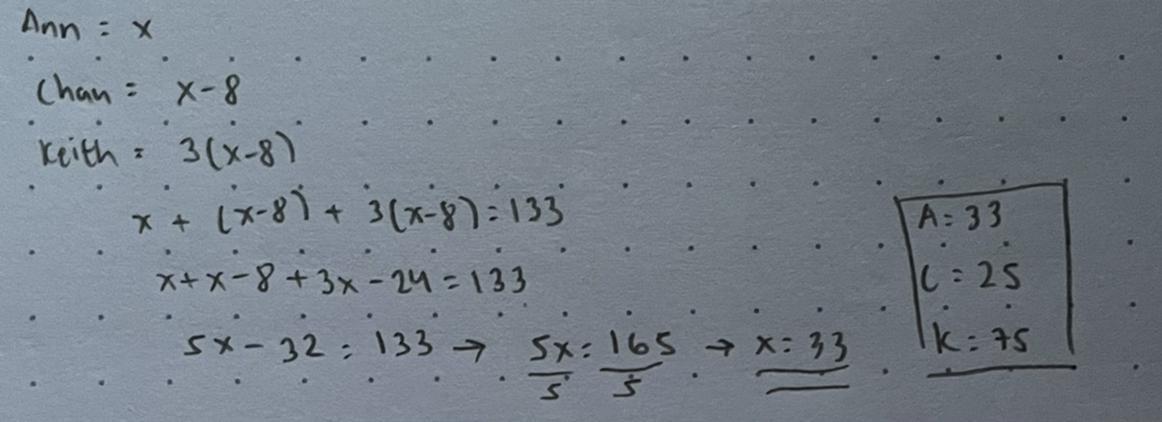 Ann = x
Chan = x-8
Keith = 3(x-8)
x + (x-8) + 3(x-8) = 133
x+x-8+3x-24=133
5x-32 = 133 → 5x/5 = 165/5 → x = 33
A = 33
C = 25
K = 75